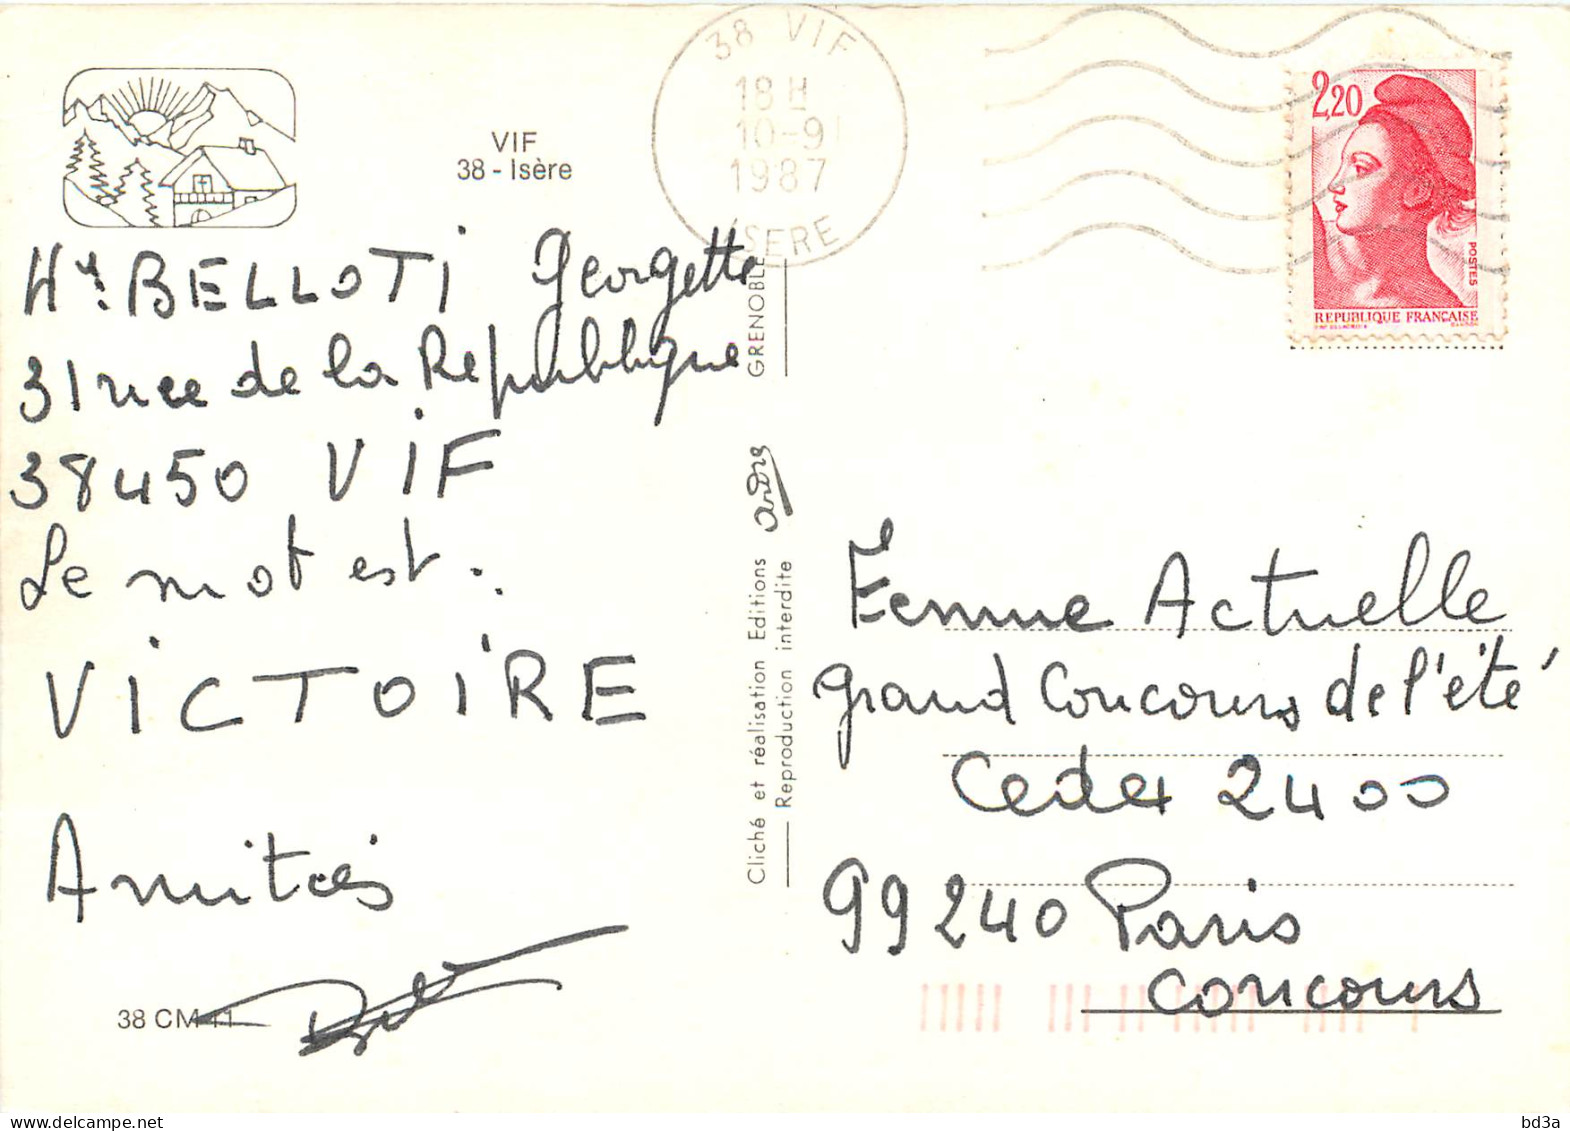 VIF
38 - Isère
38 VIF
18 H
10-9
1987
ISERE
2,20
POSTES
REPUBLIQUE FRANÇAISE
BELLOTI Georgette
31 rue de la République
38450 VIF
Le mot est :
VICTOIRE
Amitiés
38 CM 11
GRENOBLE
Cliché et réalisation Editions André
Reproduction interdite
Femme Actuelle
grand Concours de l'été
Cedex 2400
99240 Paris
Concours
bd3a